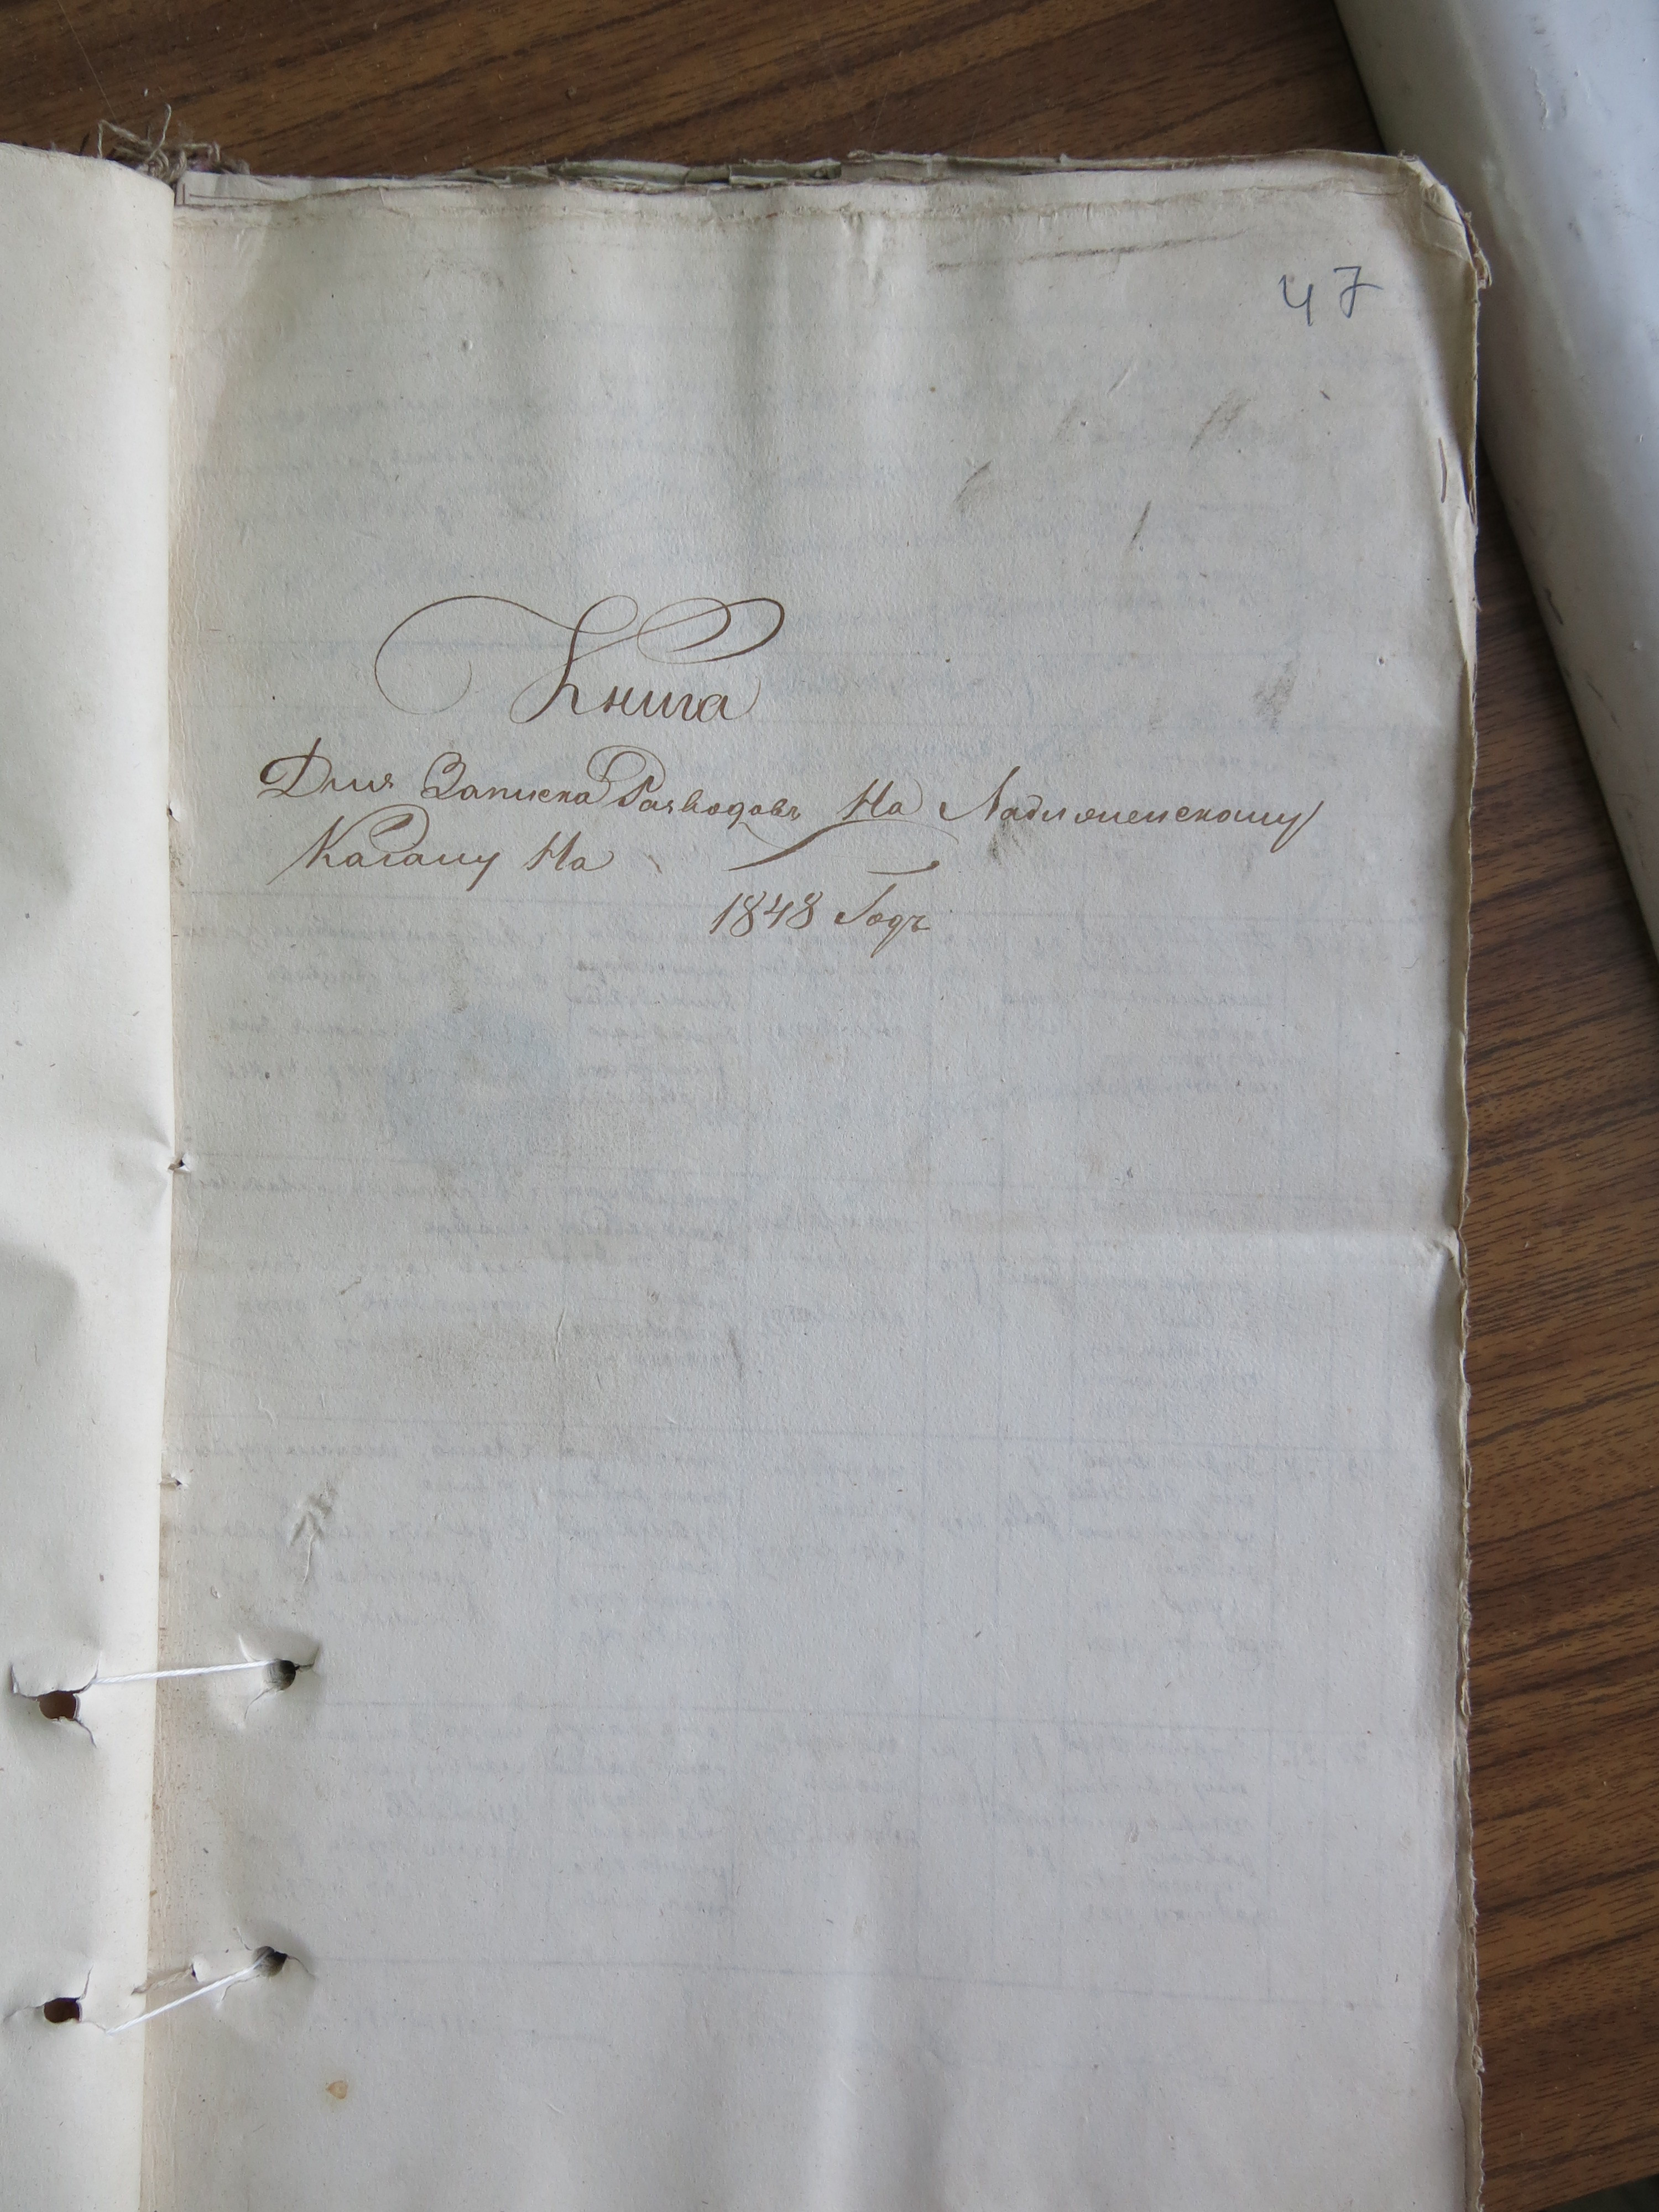 47
Книга
Для Записка Разводовъ На
Кагалу На
1848 Годъ